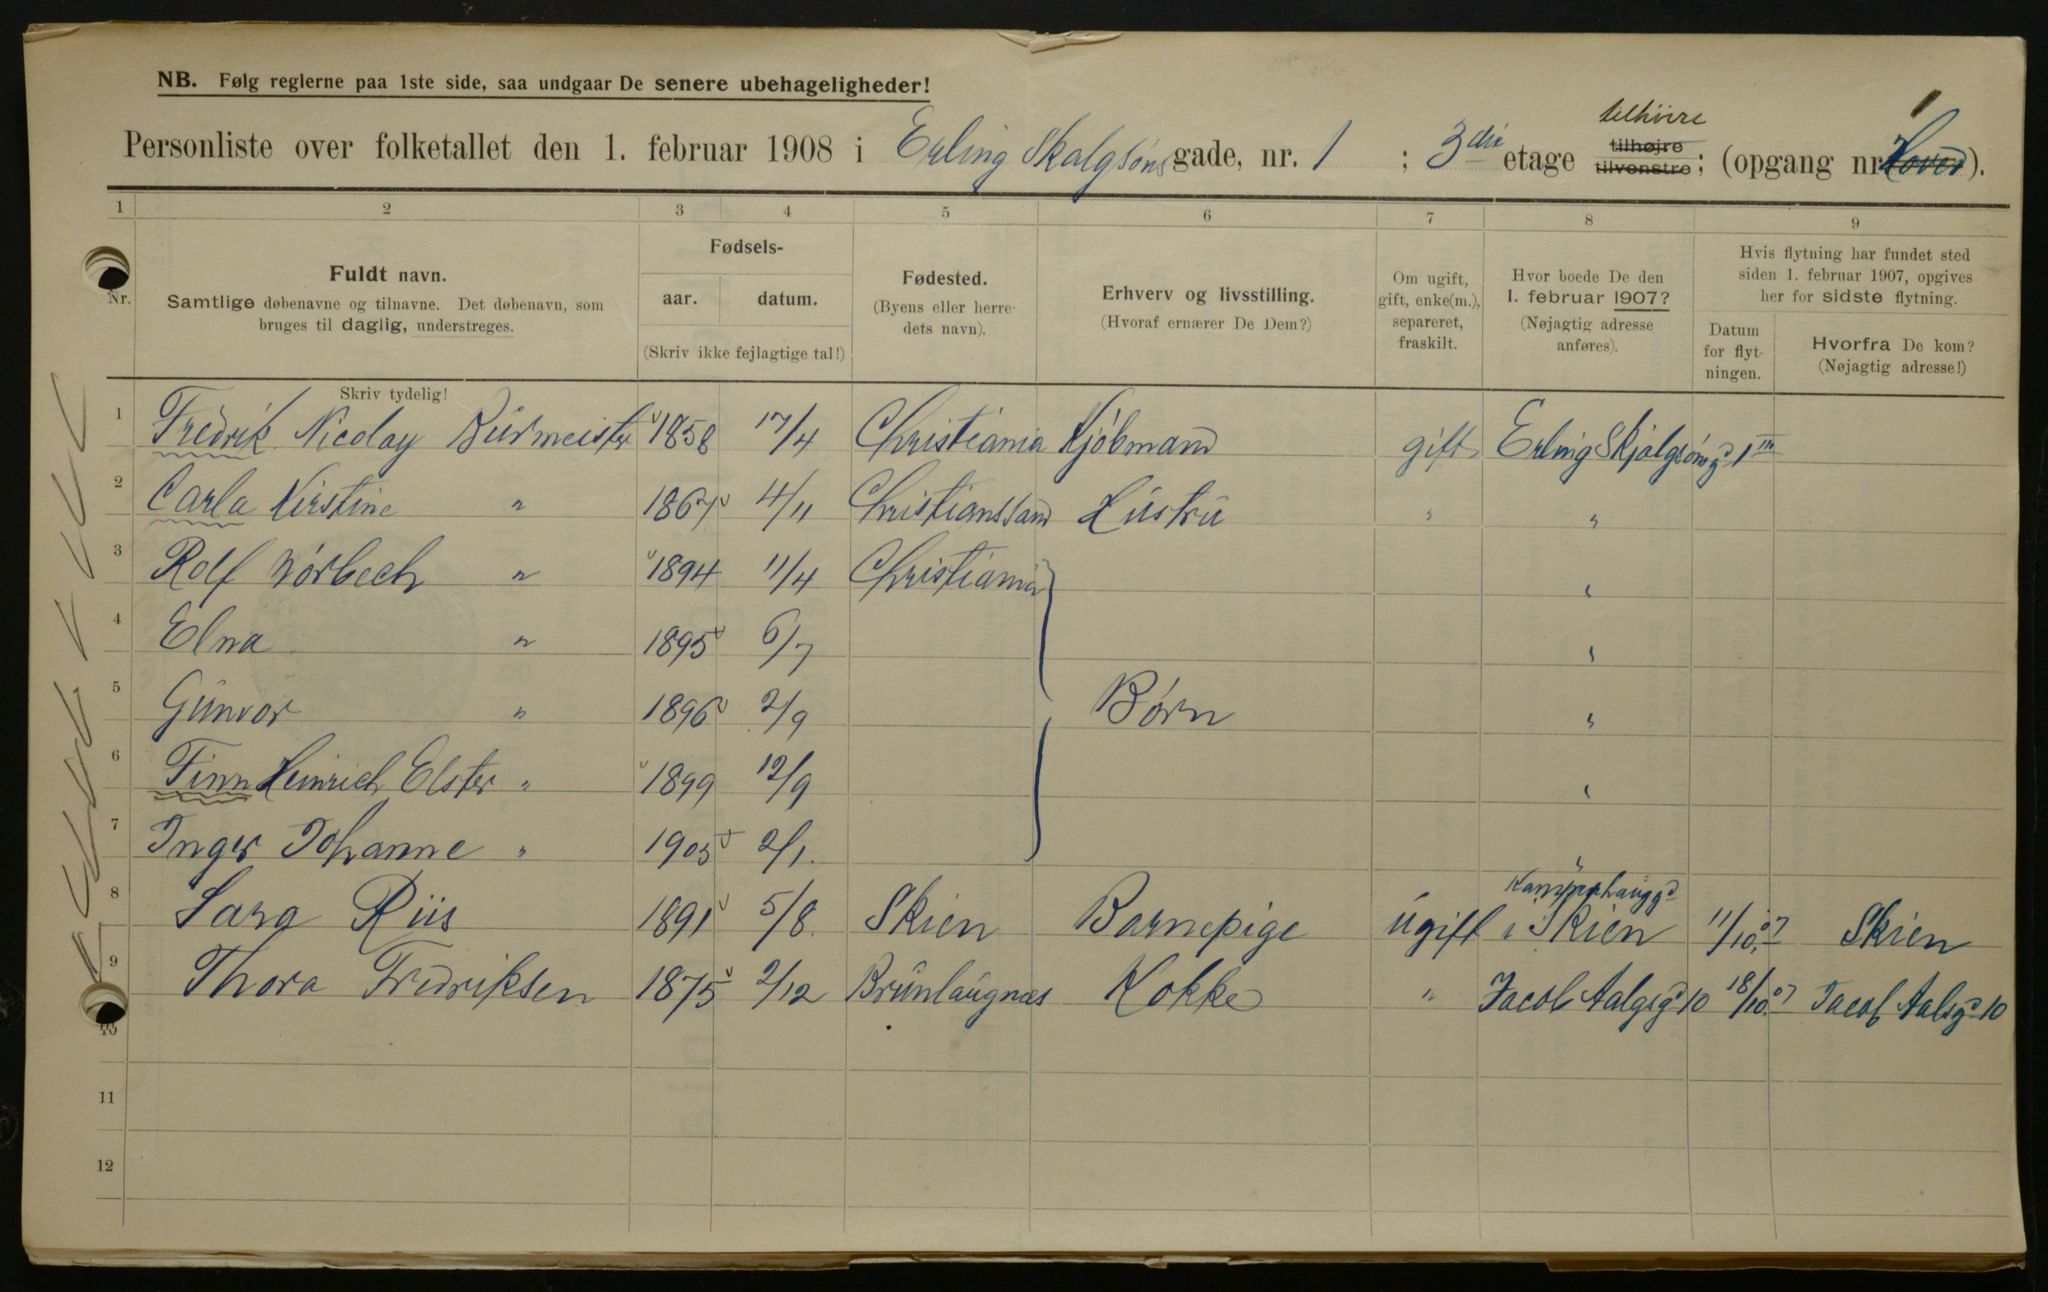 NB. Følg reglerne paa 1ste side, saa undgaar De senere ubehageligheder!
tilhøire
Personliste over folketallet den 1. februar 1908 i Erling Skalgsøns gade, nr. 1 ; 3die etage tilhøjre tilvenstre; (opgang nr. Hoved 1).
1 2 3 4 5 6 7 8 9
Nr.
Fuldt navn.
Samtlige døbenavne og tilnavne. Det døbenavn, som
bruges til daglig, understreges.
Skriv tydelig!
Fødsels-
aar. datum.
(Skriv ikke fejlagtige tal!)
Fødested.
(Byens eller herre-
dets navn).
Erhverv og livsstilling.
(Hvoraf ernærer De Dem?)
Om ugift,
gift, enke(m.),
separeret,
fraskilt.
Hvor boede De den
1. februar 1907?
(Nøjagtig adresse
anføres).
Hvis flytning har fundet sted
siden 1. februar 1907, opgives
her for sidste flytning.
Datum
for flyt-
ningen.
Hvorfra De kom?
(Nøjagtig adresse!)
1 Fredrik Nicolay Burmeister 1858 17/4 Christiania Kjöbmand gift Erling Skjalgsønsgd 1 III
2 Carla Kirstine " 1867 4/11 Christianssand Hustru " "
3 Rolf Nørbech " 1894 11/4 Christiania "
4 Elna " 1895 6/7 "
5 Gunvor " 1896 2/9 Børn "
6 Finn Heinrich Elster " 1899 12/9 "
7 Inger Johanne " 1905 2/1. "
8 Sara Riis 1891 5/8. Skien Barnepige ugift Skien 11/10.07 Skien
9 Thora Fredriksen 1875 2/12 Brunlaugnæs Kokke " Jacob Aalsgd 10 18/10.07 Jacob Aalsgd 10
10
11
12